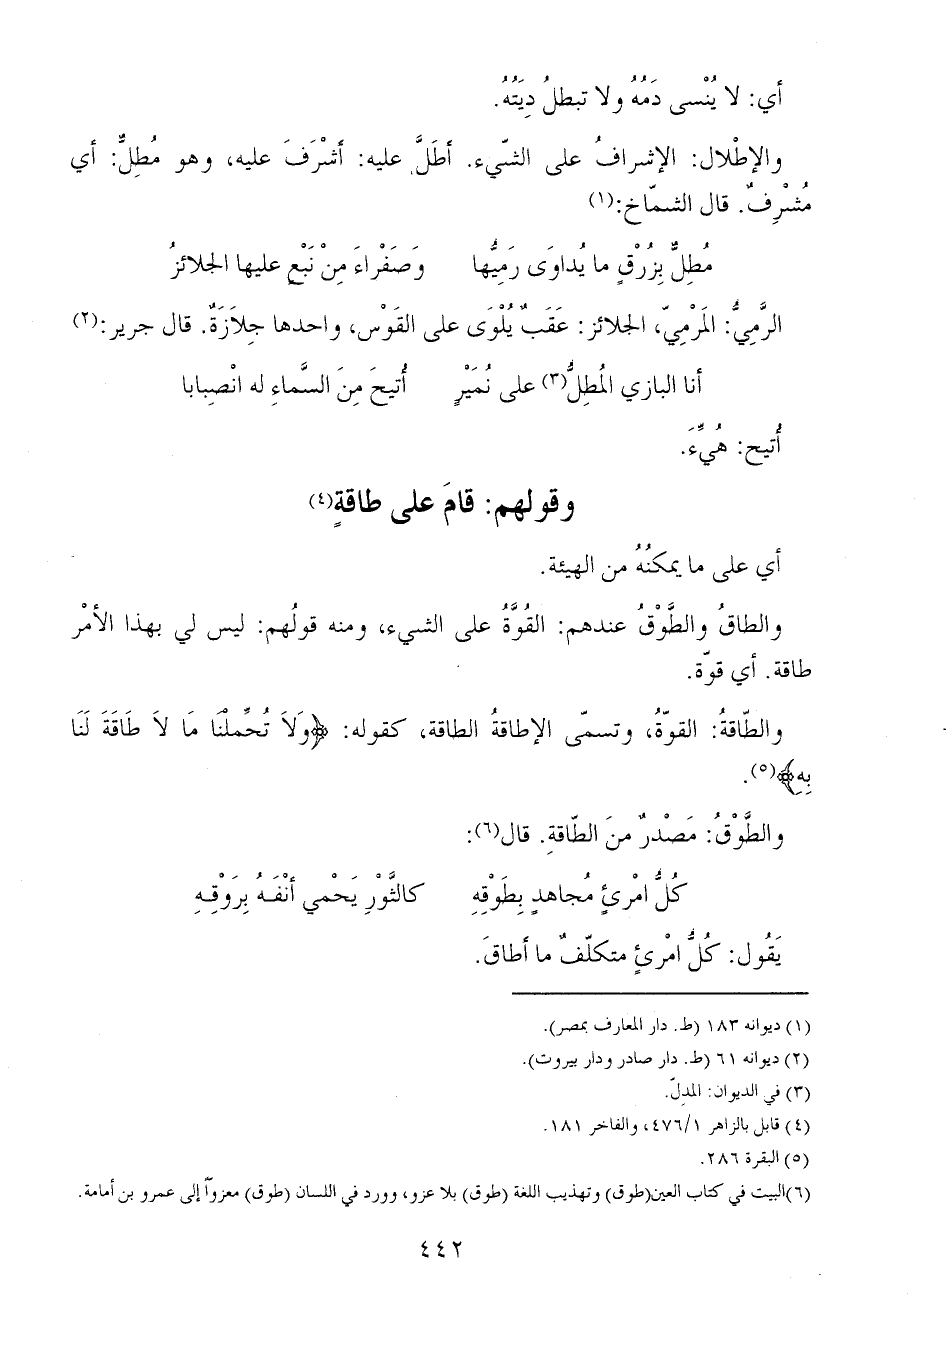 أي: لا يُنْسى دَمُهُ ولا تبطلُ دِيَتُهُ.
والإطْلال: الإشرافُ على الشيّء. أطَلَّ عليه: أشْرَفَ عليه، وهو مُطِلٌّ: أي
مُشْرِفٌ. قال الشمّاخ:(١)
مُطِلٌّ بِزُرْقٍ ما يُداوَى رَمِيُّها وَصَفْراءَ مِنْ نَبْعٍ عليها الجلائزُ
الرَّمِيُّ: المَرْمِيّ، الجلائز: عَقَبٌ يُلْوَى على القَوْس، واحدها جِلازَةٌ. قال جرير:(٢)
أنا البازي المُطِلُّ(٣) على نُمَيْرٍ أُتيحَ مِنَ السَّماءِ له انْصِبابا
أُتيح: هُيِّءَ.
وقولهم: قامَ على طاقةٍ(٤)
أي على ما يمكنُهُ من الهيئة.
والطاقُ والطَّوْقُ عندهم: القُوَّةُ على الشيء، ومنه قولُهم: ليس لي بهذا الأمْر
طاقة. أي قوّة.
والطّاقةُ: القوّةُ، وتسمّى الإطاقةُ الطاقة، كقوله: ﴿وَلاَ تُحَمِّلْنَا مَا لاَ طَاقَةَ لَنَا
بِهِ﴾(٥).
والطَّوْقُ: مَصْدرٌ منَ الطّاقةِ. قال(٦):
كُلُّ امْرئٍ مُجاهدٍ بِطَوْقِهِ كالثَّوْرِ يَحْمي أنْفَـهُ بِرَوْقِـهِ
يَقُول: كُلُّ امْرئٍ متكلّفٌ ما أطاقَ.
(١) ديوانه ١٨٣ (ط. دار المعارف بمصر).
(٢) ديوانه ٦١ (ط. دار صادر ودار بيروت).
(٣) في الديوان: المدِلّ.
(٤) قابل بالزاهر ٤٧٦/١، والفاخر ١٨١.
(٥) البقرة ٢٨٦.
(٦)البيت في كتاب العين(طوق) وتهذيب اللغة (طوق) بلا عزو، وورد في اللسان (طوق) معزوّاً إلى عمرو بن أمامة.
٤٤٢